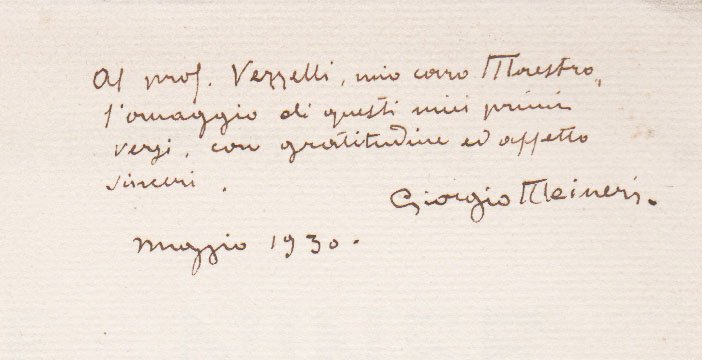 Al prof. Vezzelli, mio caro Maestro,
l'omaggio di questi miei primi
versi, con gratitudine ed affetto
sinceri.
Giorgio Meineri.
Maggio 1930.